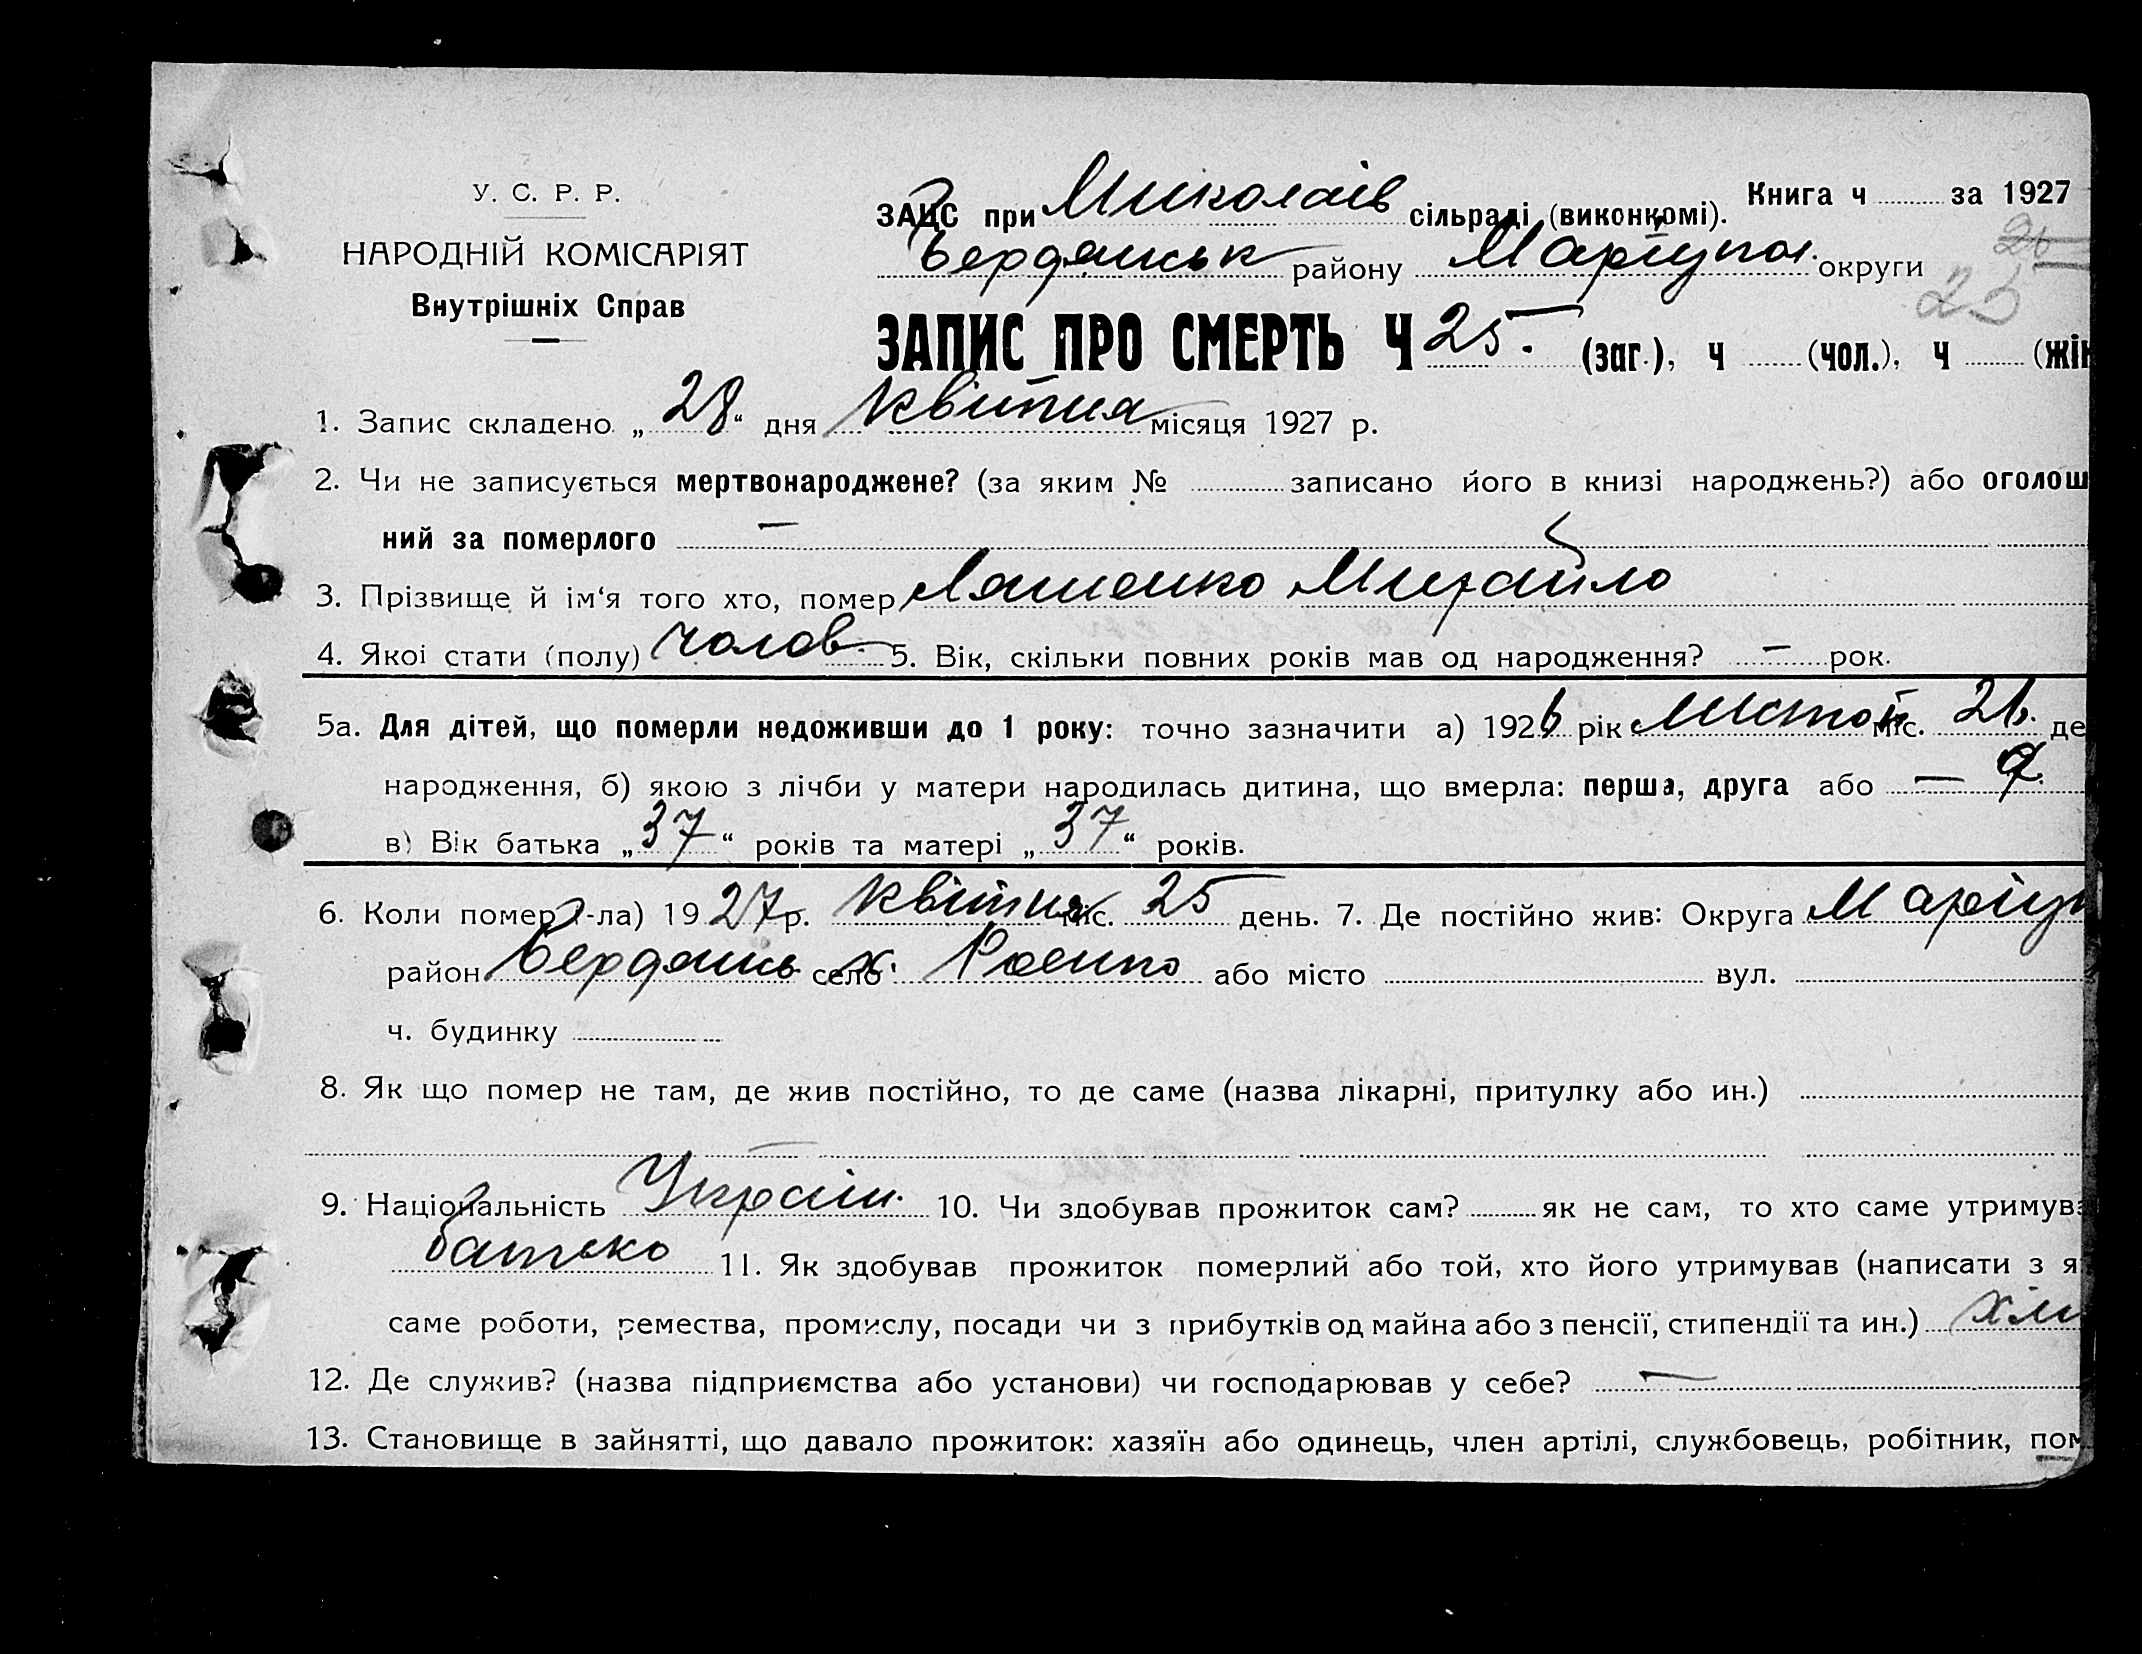 У. С. Р. Р.
НАРОДНІЙ КОМІСАРІЯТ
Внутрішніх Справ
Книга ч за 1927
ЗАЦС при Миколаїв сільраді (виконкомі).
Бердянськ району Маріупол. округи
26
25
ЗАПИС ПРО СМЕРТЬ Ч 25. (заг.), ч (чол.), ч (жін
1. Запис складено „28“ дня квітня місяця 1927 р.
2. Чи не записується мертвонароджене? (за яким № записано його в книзі народжень?) або оголош
ний за померлого —
3. Прізвище й ім‘я того хто, помер Ляшенко Михайло
4. Якоі стати (полу) чолов. 5. Вік, скільки повних років мав од народження? — рок.
5а. Для дітей, що померли недоживши до 1 року: точно зазначити а) 1926 рік Листоп міс. 26. де
народження, б) якою з лічби у матери народилась дитина, що вмерла: перша, друга або — 9.
в) Вік батька „37“ років та матері „37“ років.
6. Коли помер (-ла) 1927 р. квітня міс. 25 день. 7. Де постійно жив: Округа Маріуп
район Бердянсь село х. Роєнко або місто вул.
ч. будинку
8. Як що помер не там, де жив постійно, то де саме (назва лікарні, притулку або ин.)
9. Національність Україн. 10. Чи здобував прожиток сам? як не сам, то хто саме утримув
батько 11. Як здобував прожиток померлий або той, хто його утримував (написати з я
саме роботи, ремества, промислу, посади чи з прибутків од майна або з пенсії, стипендії та ин.)
12. Де служив? (назва підприємства або установи) чи господарював у себе? —
13. Становище в зайнятті, що давало прожиток: хазяїн або одинець, член артілі, службовець, робітник, пом